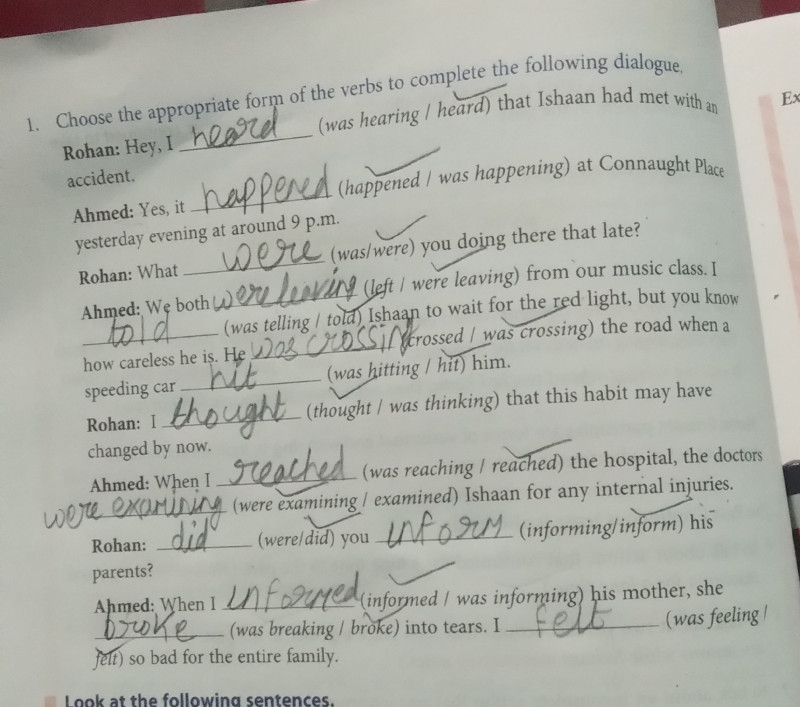 1. Choose the appropriate form of the verbs to complete the following dialogue.
Rohan: Hey, I heard (was hearing / heard) that Ishaan had met with an
accident.
Ahmed: Yes, it happened (happened / was happening) at Connaught Place
yesterday evening at around 9 p.m.
Rohan: What were (was/were) you doing there that late?
Ahmed: We both were leaving (left / were leaving) from our music class. I
told (was telling / told) Ishaan to wait for the red light, but you know
how careless he is. He was crossing (crossed / was crossing) the road when a
speeding car hit (was hitting / hit) him.
Rohan: I thought (thought / was thinking) that this habit may have
changed by now.
Ahmed: When I reached (was reaching / reached) the hospital, the doctors
were examining (were examining / examined) Ishaan for any internal injuries.
Rohan: did (were/did) you inform (informing/inform) his
parents?
Ahmed: When I informed (informed / was informing) his mother, she
broke (was breaking / broke) into tears. I felt (was feeling /
felt) so bad for the entire family.
Look at the following sentences.
Ex